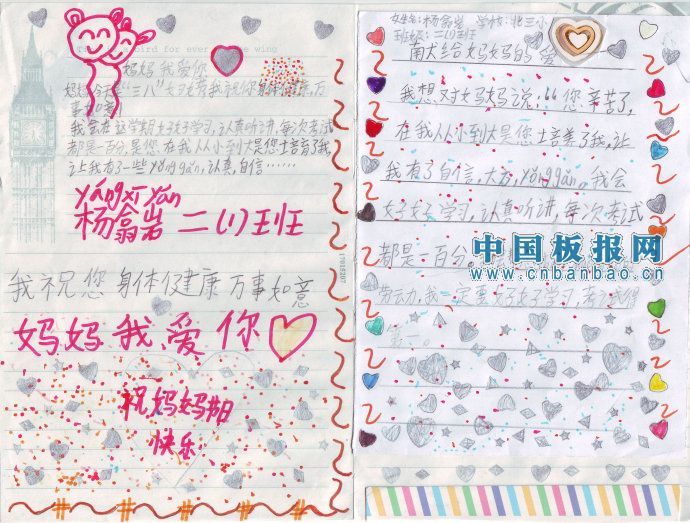 for ever wing
妈妈我爱你
我会在这学期好好学习,认真听讲,每次考试
都是一百分,是您,在我从小到大是您土音育了我,
让我有了一些yǒnggǎn,认真,自信……
yángxīyán
杨翕岩 二(1)班
我祝您身体健康万事如意
妈妈我爱你
祝妈妈节日
快乐
17015207
女生名:杨翕岩 学校:北三小
班级:二(1)班
献给妈妈的爱
我想对妈妈说:“您辛苦了,
在我从小到大是您土音养了我,让
我有了自信,大方,yǒnggǎn。我会
好好学习,认真听讲,每次考试
都是一百分。
我一定要好好学习,
第一。
中国板报网
www.cnbanbao.cn